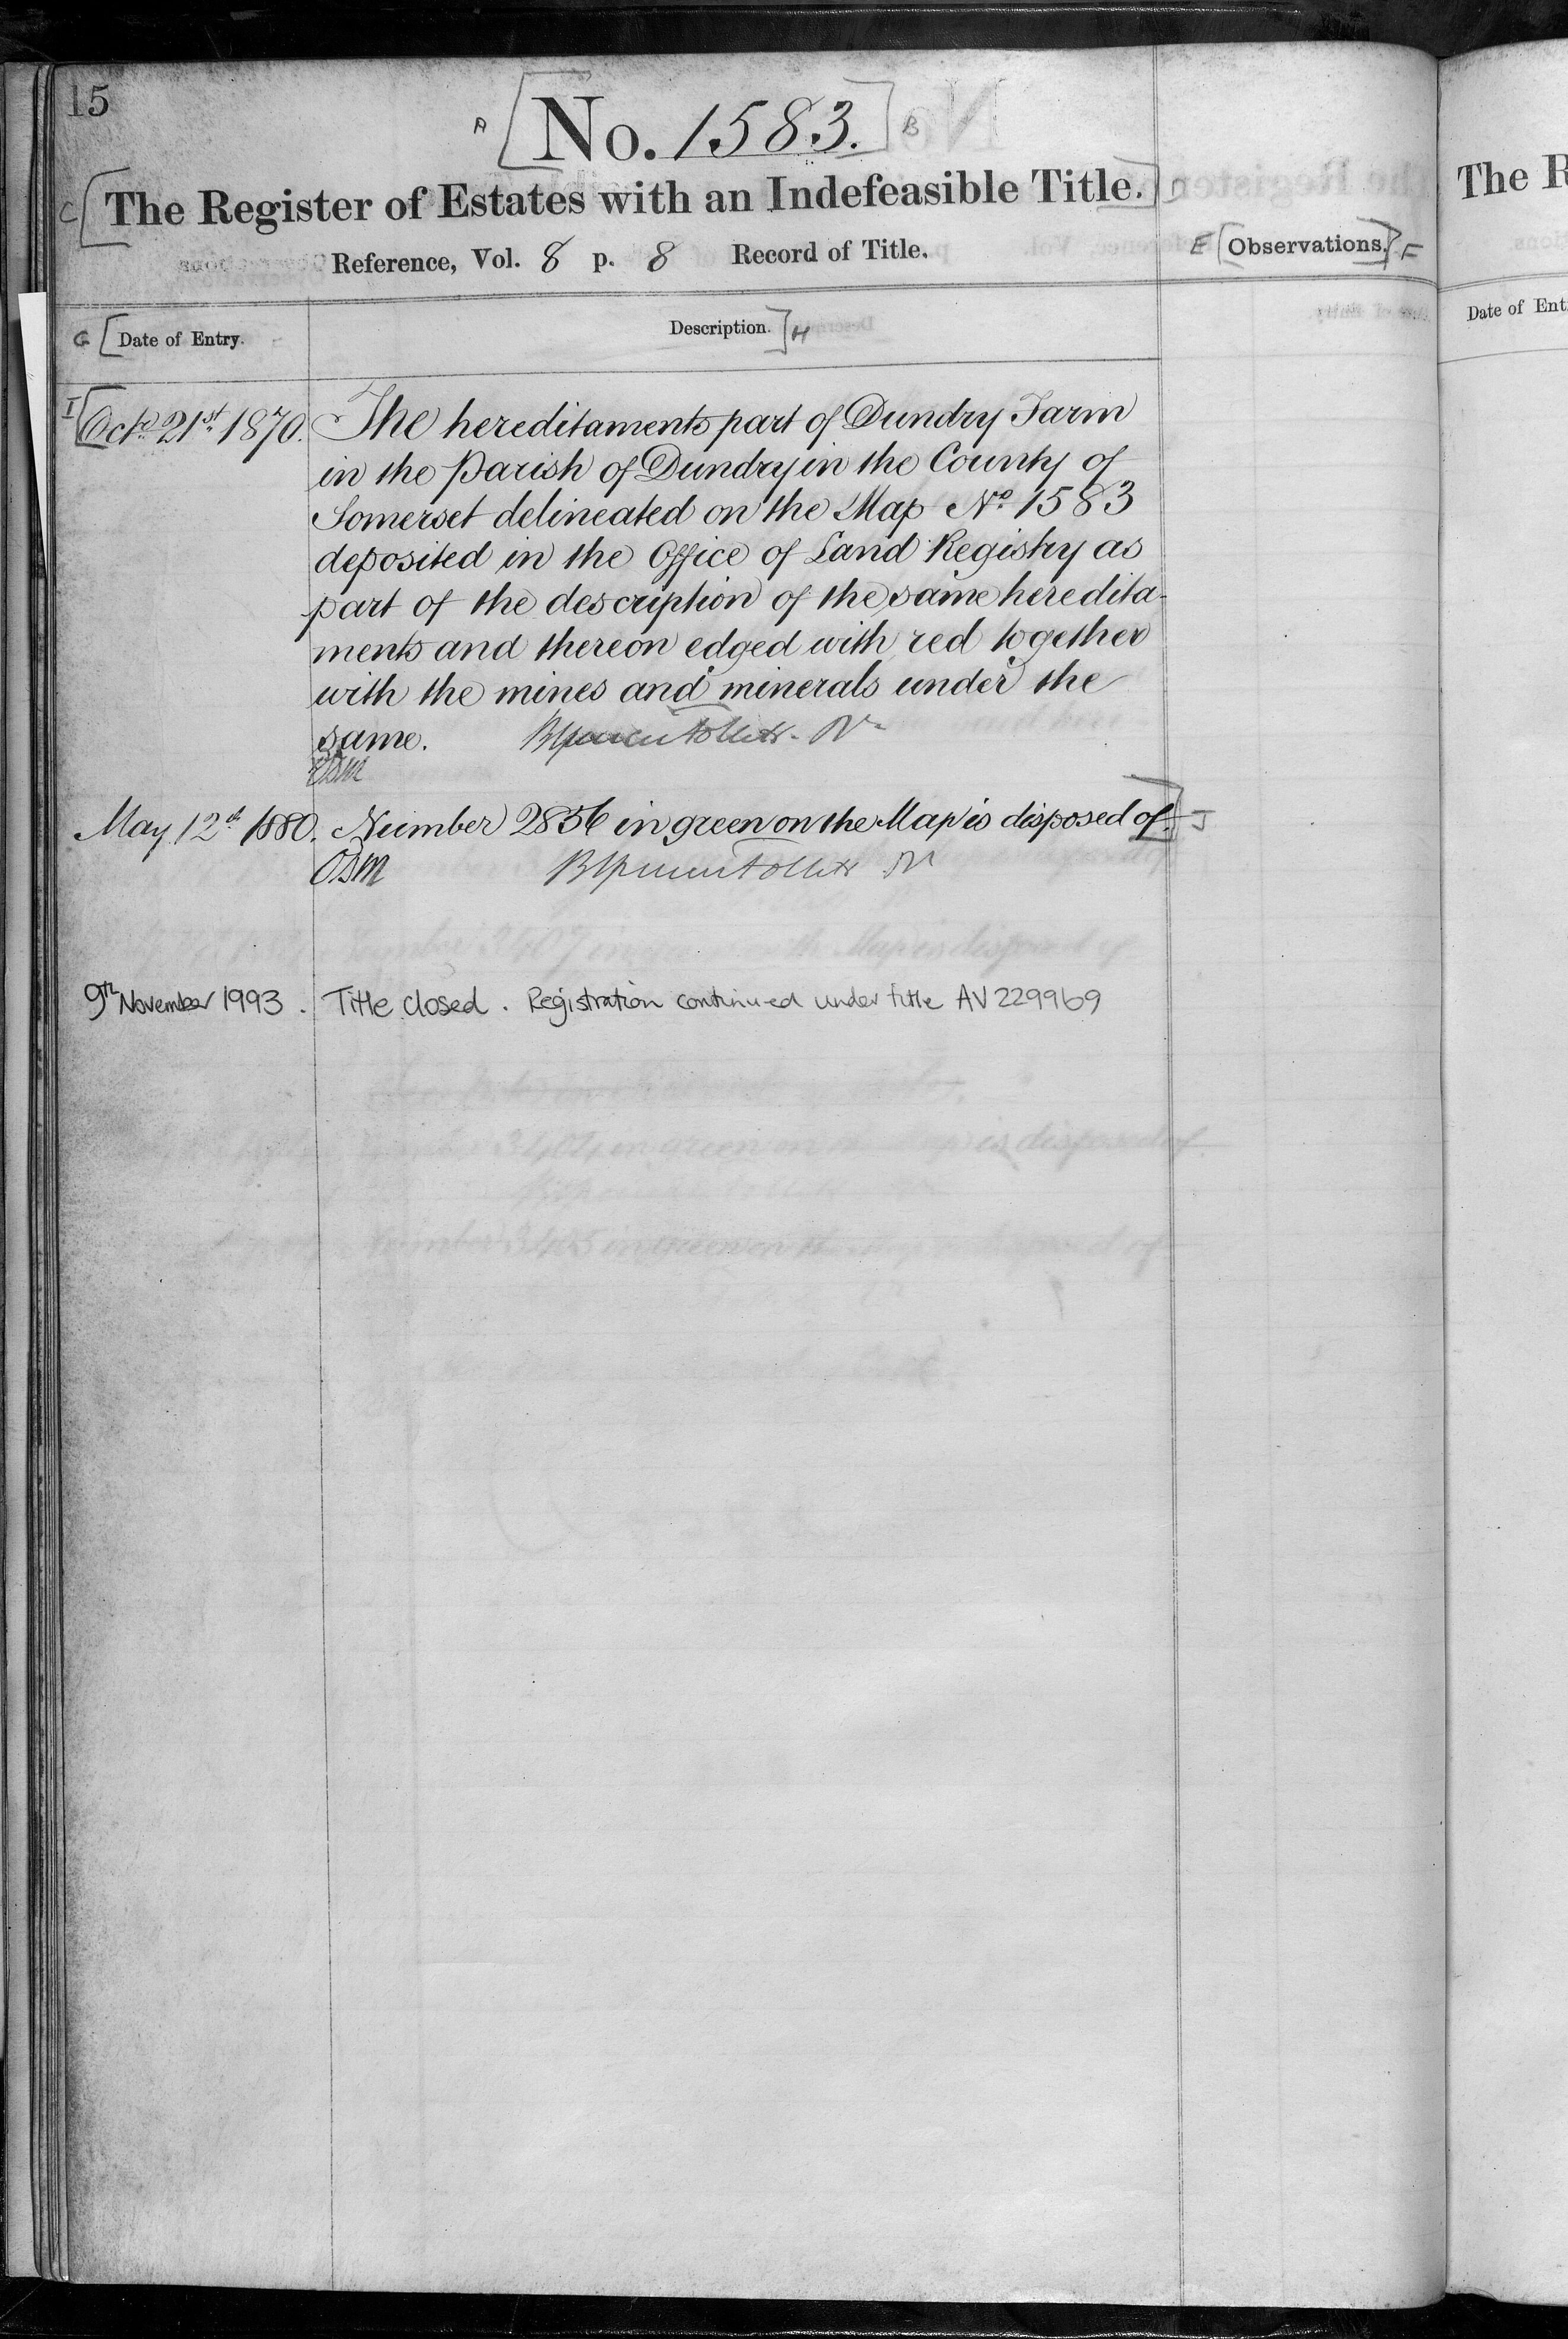 15
A [No. 1583.] B
C [The Register of Estates with an Indefeasible Title.]
Reference, Vol. 8 p. 8 Record of Title.
E [Observations.] F
G [Date of Entry.
Description.] H
I [Octr. 21st 1870. The hereditaments part of Dundry Farm
in the Parish of Dundry in the County of
Somerset delineated on the Map No. 1583
deposited in the Office of Land Registry as
part of the description of the same heredita-
ments and thereon edged with red together
with the mines and minerals under the
same.
May 12th 1880. Number 2856 in green on the Map is disposed of.] J
9th November 1993. Title closed. Registration continued under title AV 229969
The R
Date of Ent